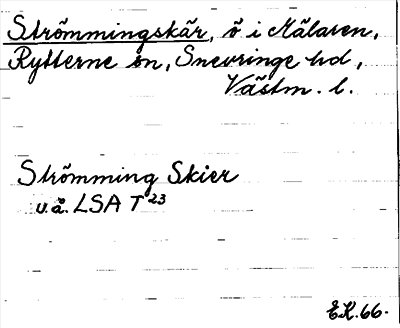 Strömmingskär, ö i Mälaren,
Rytterne sn, Snevringe hd,
Västm. l.
Strömming Skier
u.å. LSA T 23
EK.66.